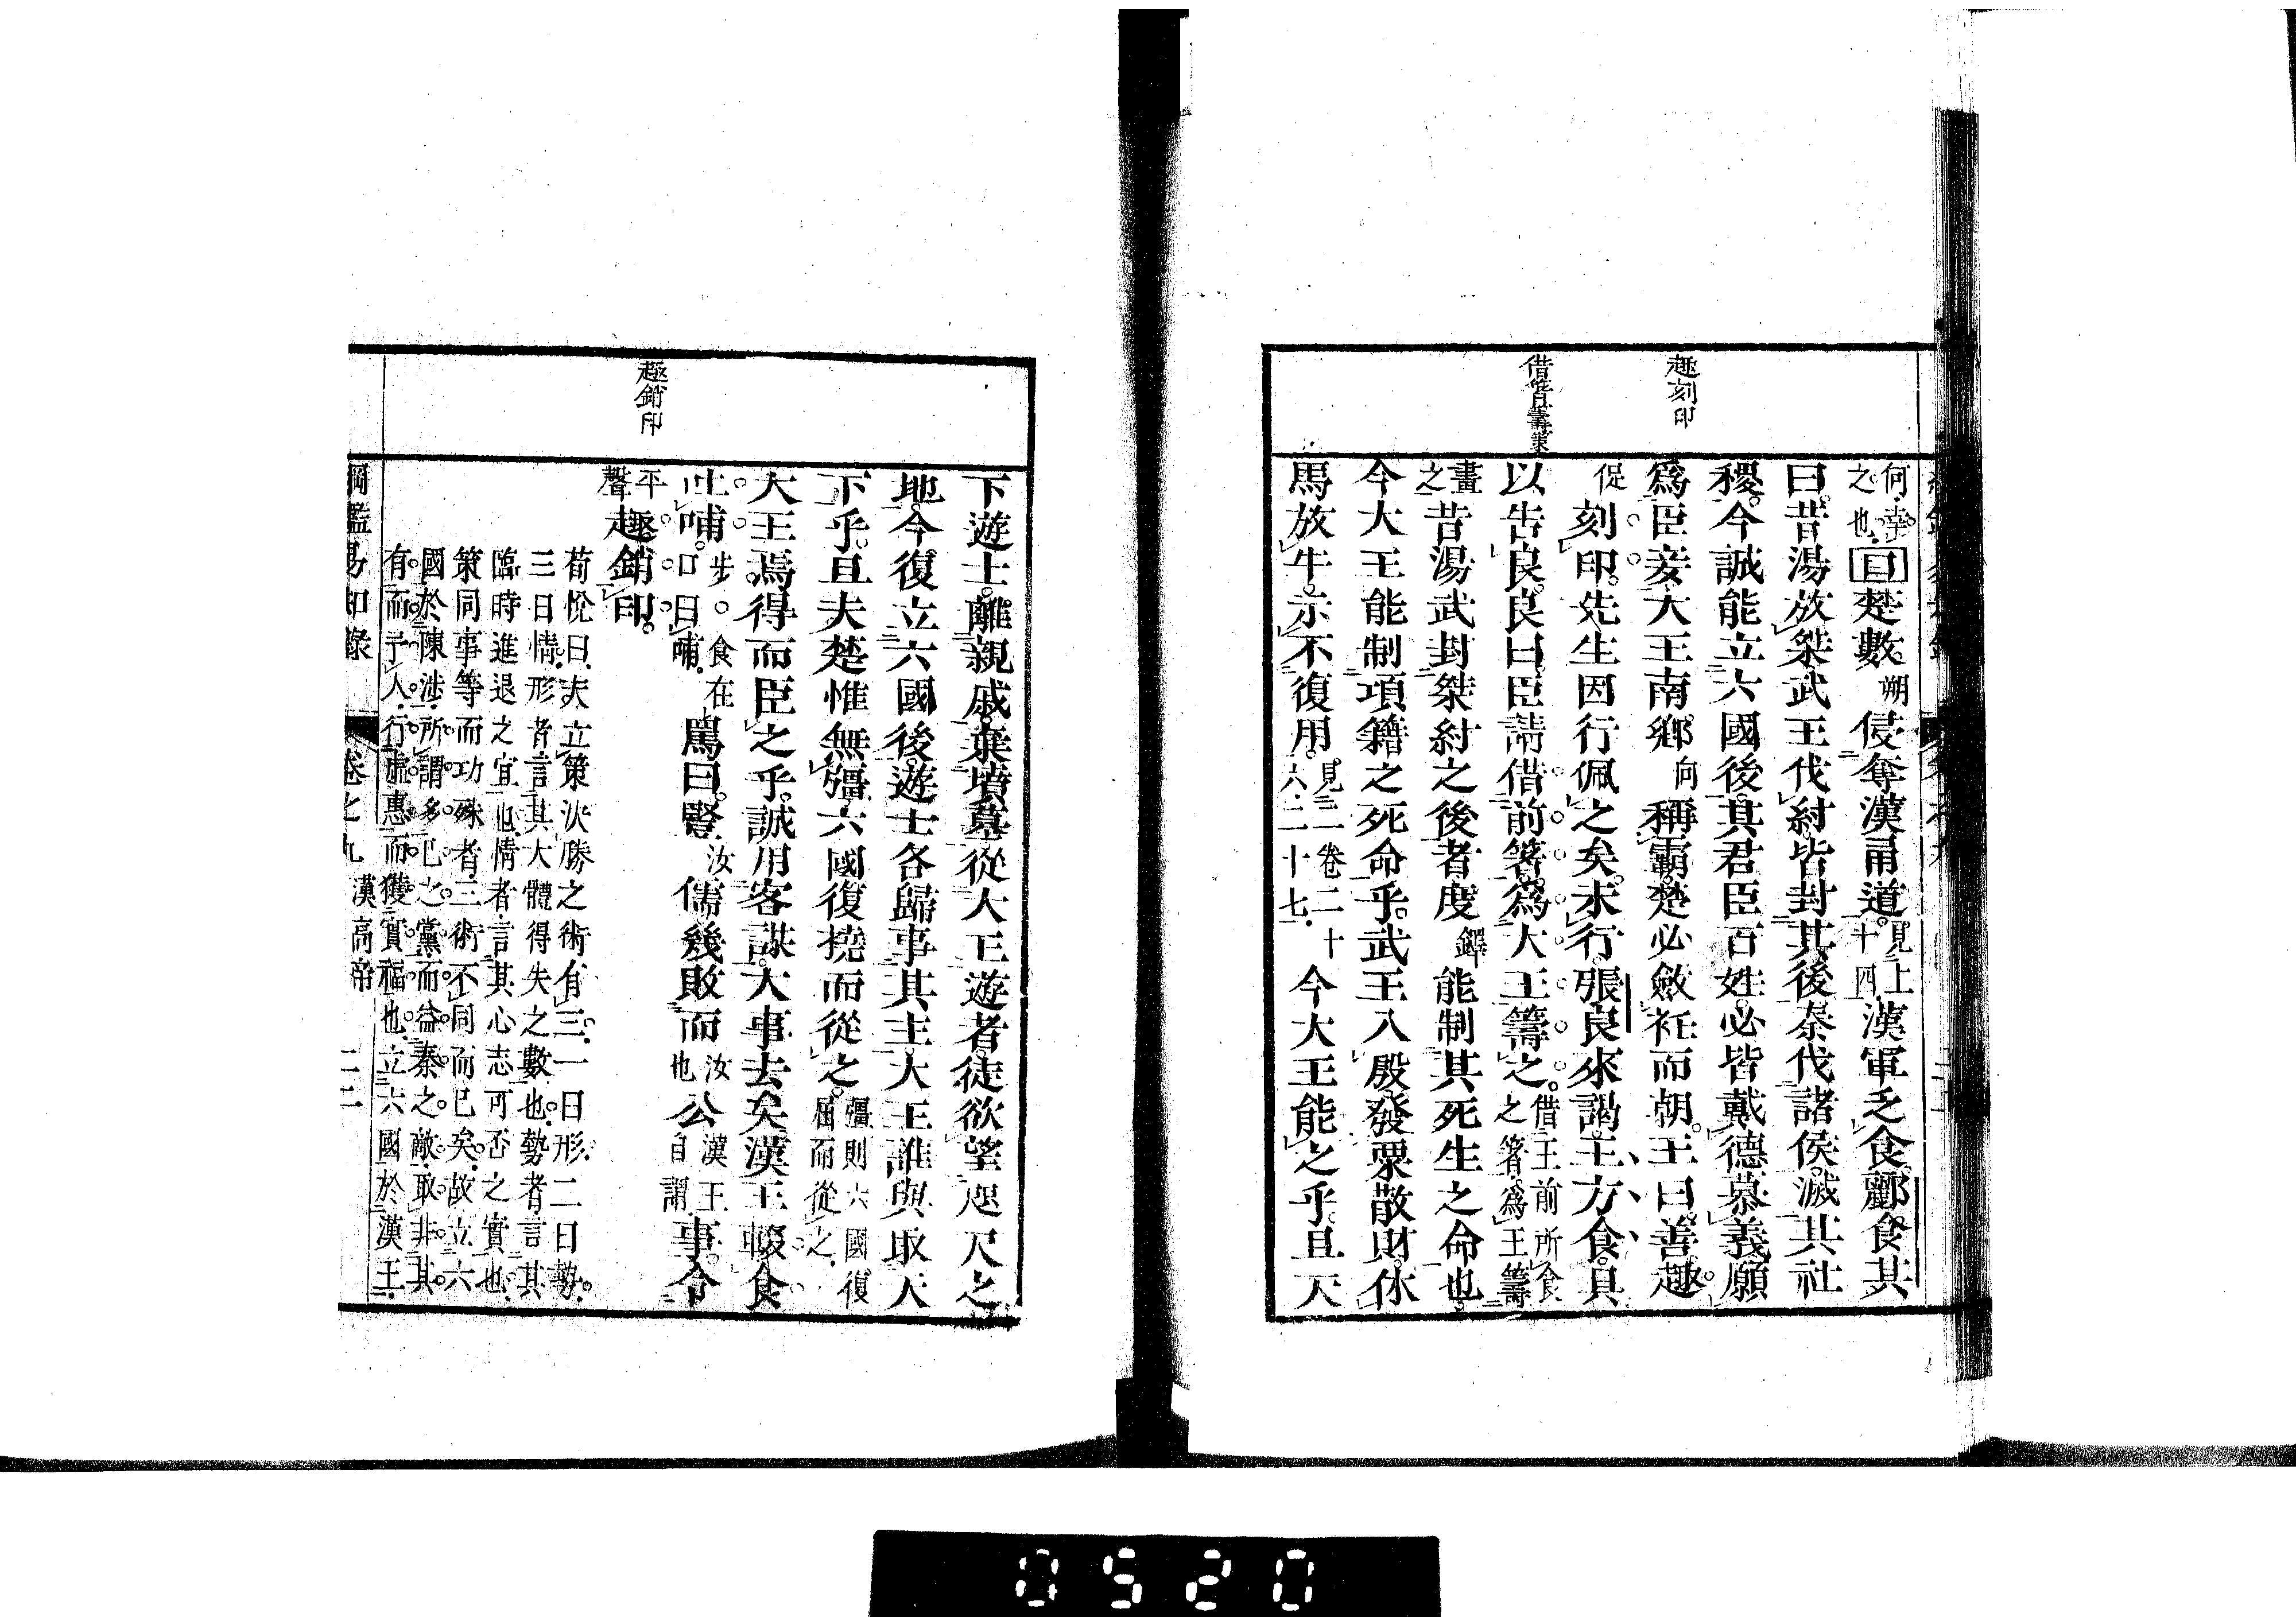 趣刻印
借箸籌策
何幸之也目楚數朔侵奪漢甬道見上十四漢軍乏食酈食其
曰昔湯放桀武王伐紂皆封其後秦伐諸侯滅其社
稷今誠能立六國後其君臣百姓必皆戴德慕義願
爲臣妾大王南鄉向稱霸楚必斂衽而朝王曰善趣
促刻印先生因行佩之矣未行張良來謁王方食具
以告良良曰臣請借前箸爲大王籌之借王前所食之箸爲王籌
畫之昔湯武封桀紂之後者度鐸能制其死生之命也
今大王能制項籍之死命乎武王入殷發粟散財休
馬放牛示不復用見二卷二十六二十七今大王能之乎且天
趣銷印
下遊士離親戚棄墳墓從大王遊者徒欲望咫尺之
地今復立六國後遊士各歸事其主大王誰與取天
下乎且夫楚惟無彊六國復撓而從之彊則六國復屈而從之
大王焉得而臣之乎誠用客謀大事去矣漢王輟食
吐哺步食在口曰哺罵曰豎汝儒幾敗而汝也公漢王自謂事令
平聲趣銷印
荀悅曰夫立策決勝之術有三一曰形二曰勢
三曰情形者言其大體得失之數也勢者言其
臨時進退之宜也情者言其心志可否之實也
策同事等而功殊者三術不同而已矣故立六
國於陳涉所謂多已之黨而益秦之敵取非其
有而予人行虛惠而獲實福也立六國於漢王
綱鑑易知錄 卷之九 漢高帝 二二
0520